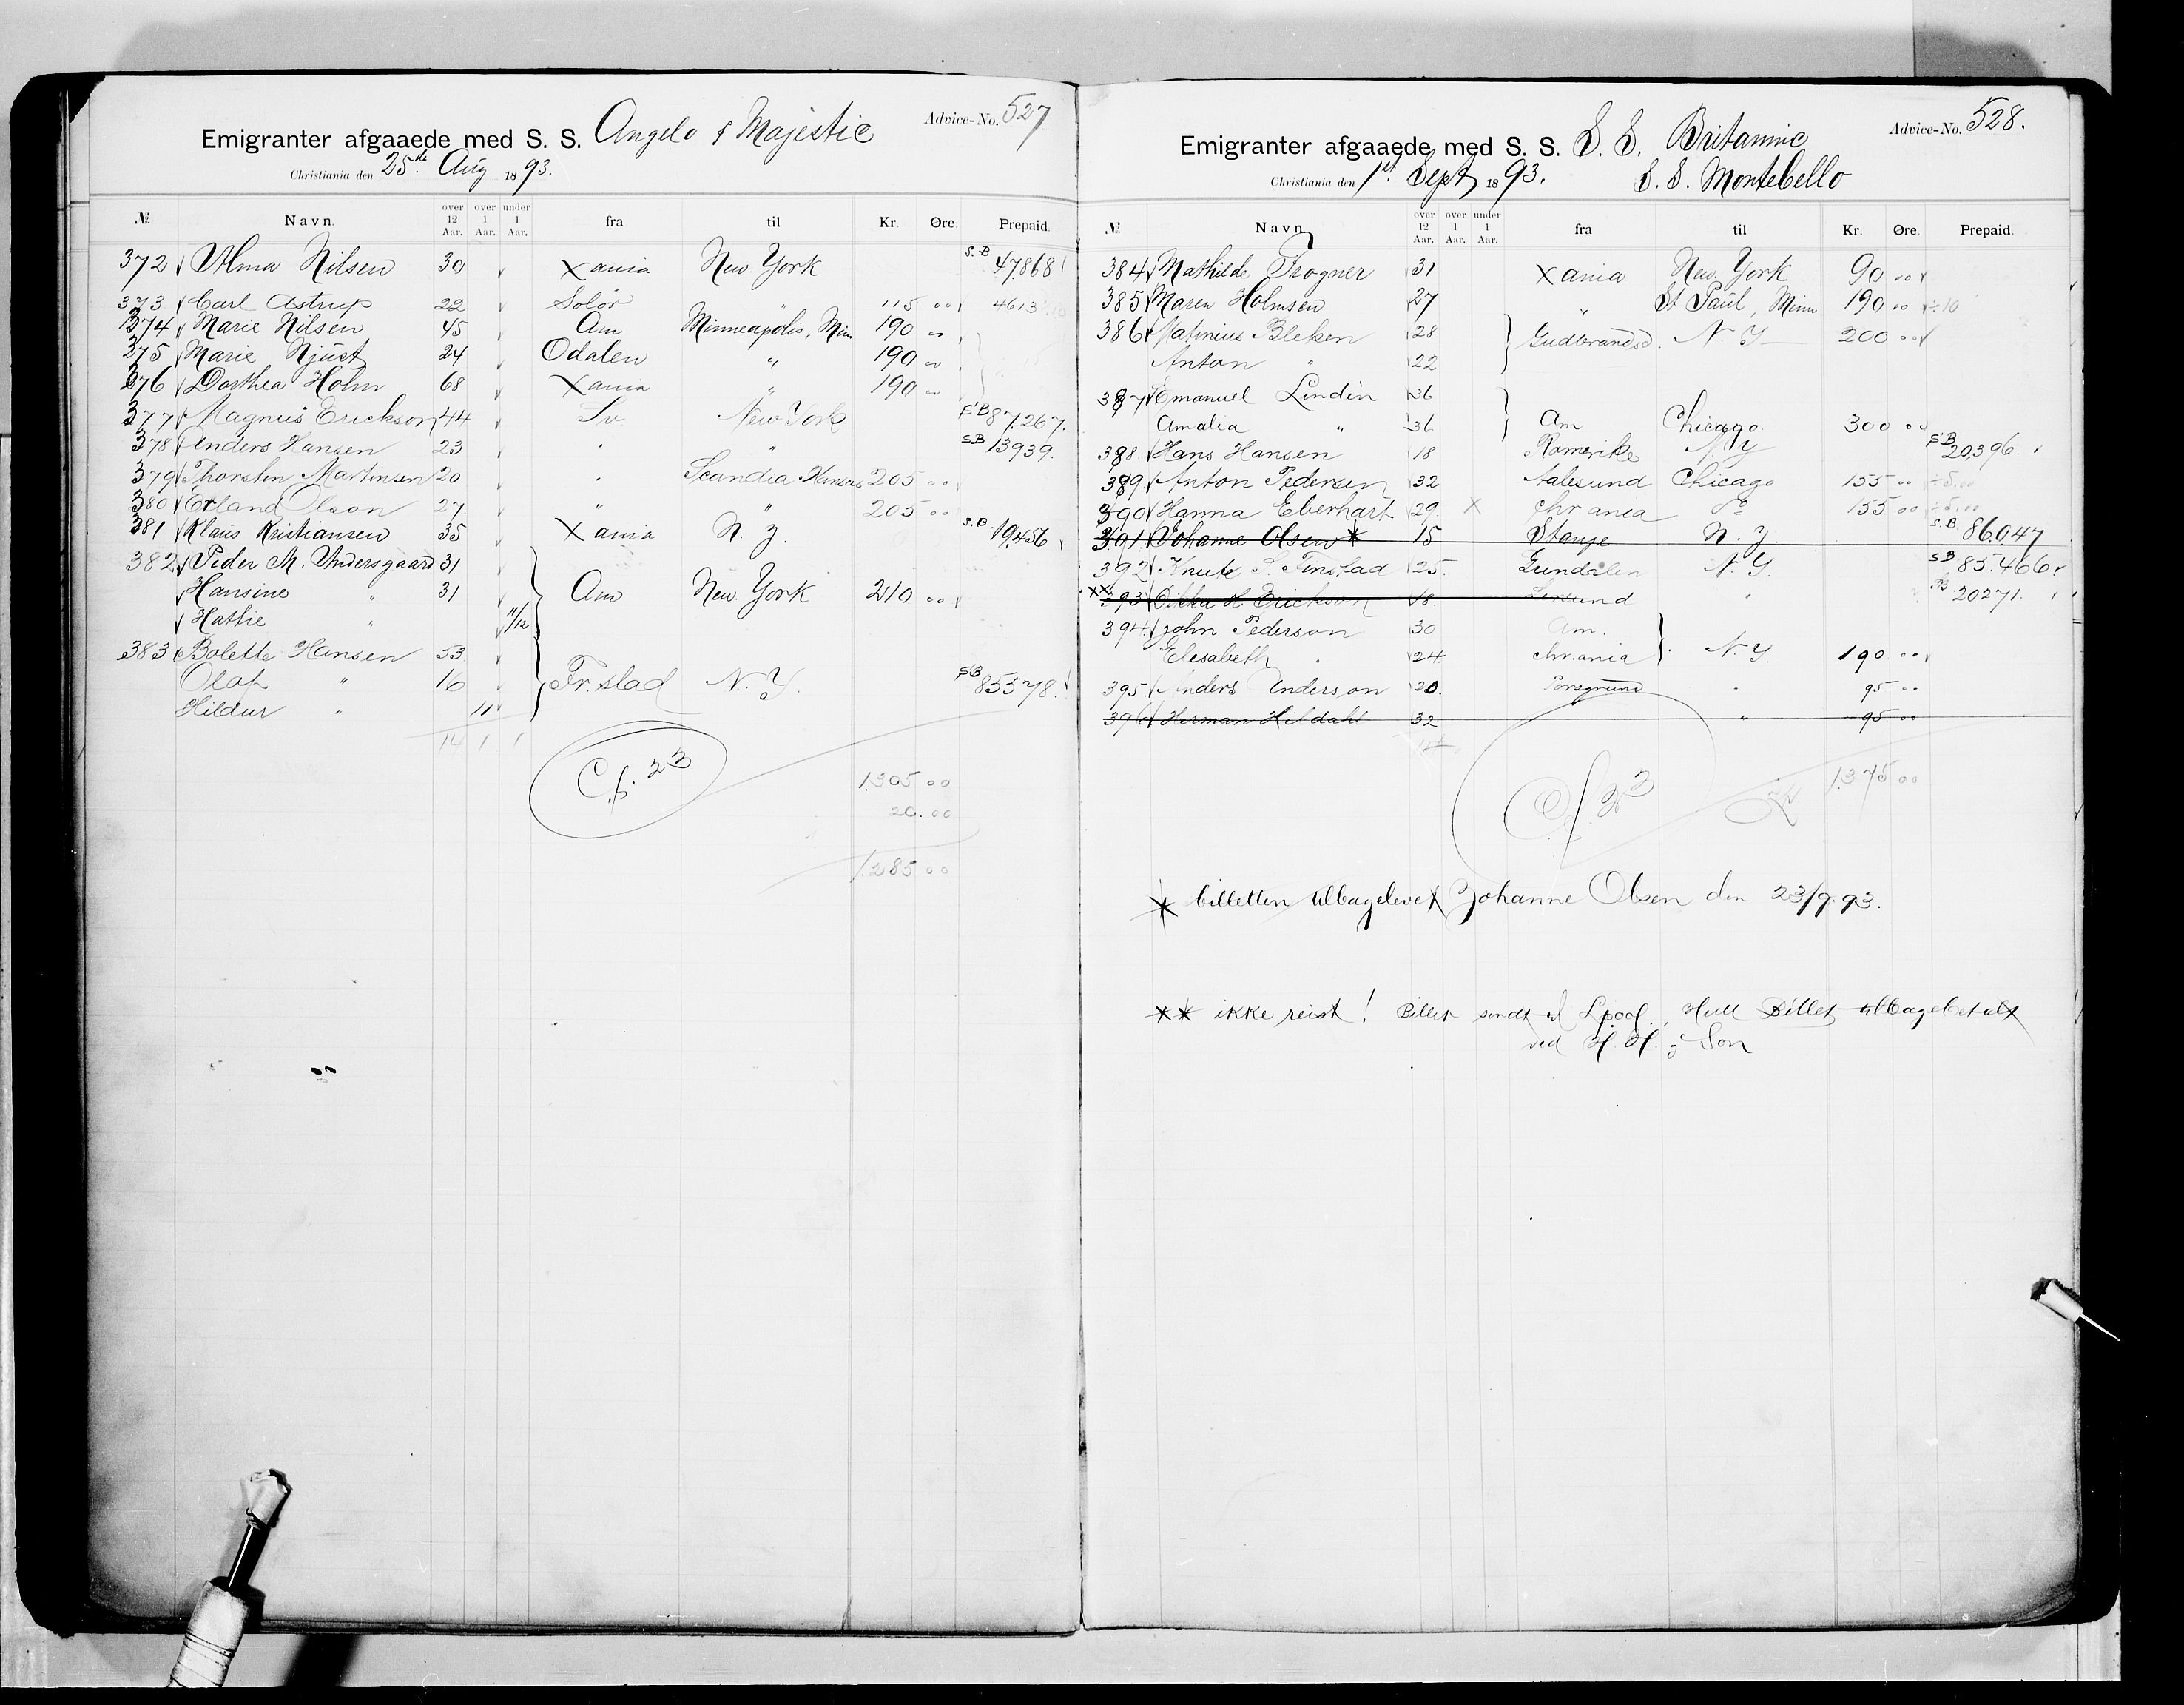 Advice-No. 527
Emigranter afgaaede med S. S. Angelo & Majestic
Christiania den 25de Aug 1893.
№ Navn. over 12 Aar. over 1 Aar. under 1 Aar. fra til Kr. Øre. Prepaid.
372 Alma Nilsen 30 Xania New York S.B 47868
373 Carl Astrup 22 Solør " 115 00 4613
374 Marie Nilsen 45 Am Minneapolis, Min 190 00
375 Marie Njust 24 Odalen " 190 00
376 Dorthea Holm 68 Xania " 190 00
377 Magnus Erickson 44 Sv New York S'B 87,267.
378 Anders Hansen 23 " " S.B 13939.
379 Thorsten Martinsen 20 " Scandia Kansas 205 00
380 Erland Olson 27. " " 205 00
381 Klaus Kristiansen 35 Xania N. Y. S.B. 19,456
382 Peder M. Andersgaard 31
Hansine " 31 Am New York 210 00
Hattie " 11/12
383 Bolette Hansen 53
Olaf " 16 Fr.stad N. Y. S'B 85578.
Hildur " 11
14 1 1
Cf. 23
1305 00
20.00
1285 00
Advice-No. 528.
Emigranter afgaaede med S. S. S. S. Britannic
Christiania den 1st Sept 1893. S. S. Montebello
№ Navn over 12 Aar. over 1 Aar. under 1 Aar. fra til Kr. Øre. Prepaid.
384 Mathilde Frogner 31 Xania New York 90 00
385 Maren Holmsen 27 " St Paul, Minn 190 00 ÷10
386 Matinius Bleken 28 Gudbrandsd. N Y 200 00
Anton " 22
387 Emanuel Lindin 36
Amalia " 36 Am Chicago 300 00
388. Hans Hansen 18 Romerike N.Y S'B 20,396.
389 Anton Pedersen 32 Aalesund Chicago 155 00 ÷5.00
390 Hanna Eberhart 29. X Chrania Do 155 00 ÷5.00
391 Johanne Olsen * 15 Stange N. Y S.B. 86.047
392 Knute Finstad 25. N. Y. SB 85.466.
** 393 H. Erickson 18. " 20271.
394. John Pederson 30 Am.
Elesabeth " 24 Chr.ania N. Y. 190 00
395. Anders Anderson 20. Porsgrund " 95 00
396 Herman Hildahl 32 " 95 00
14
Cf 23
1375 00
* billetten tilbagelevet Johanne Olsen den 23/9 93.
** ikke reist! Billet sendt til Lpool, Hull Billet tilbagebetalt
ved H. H. & Son